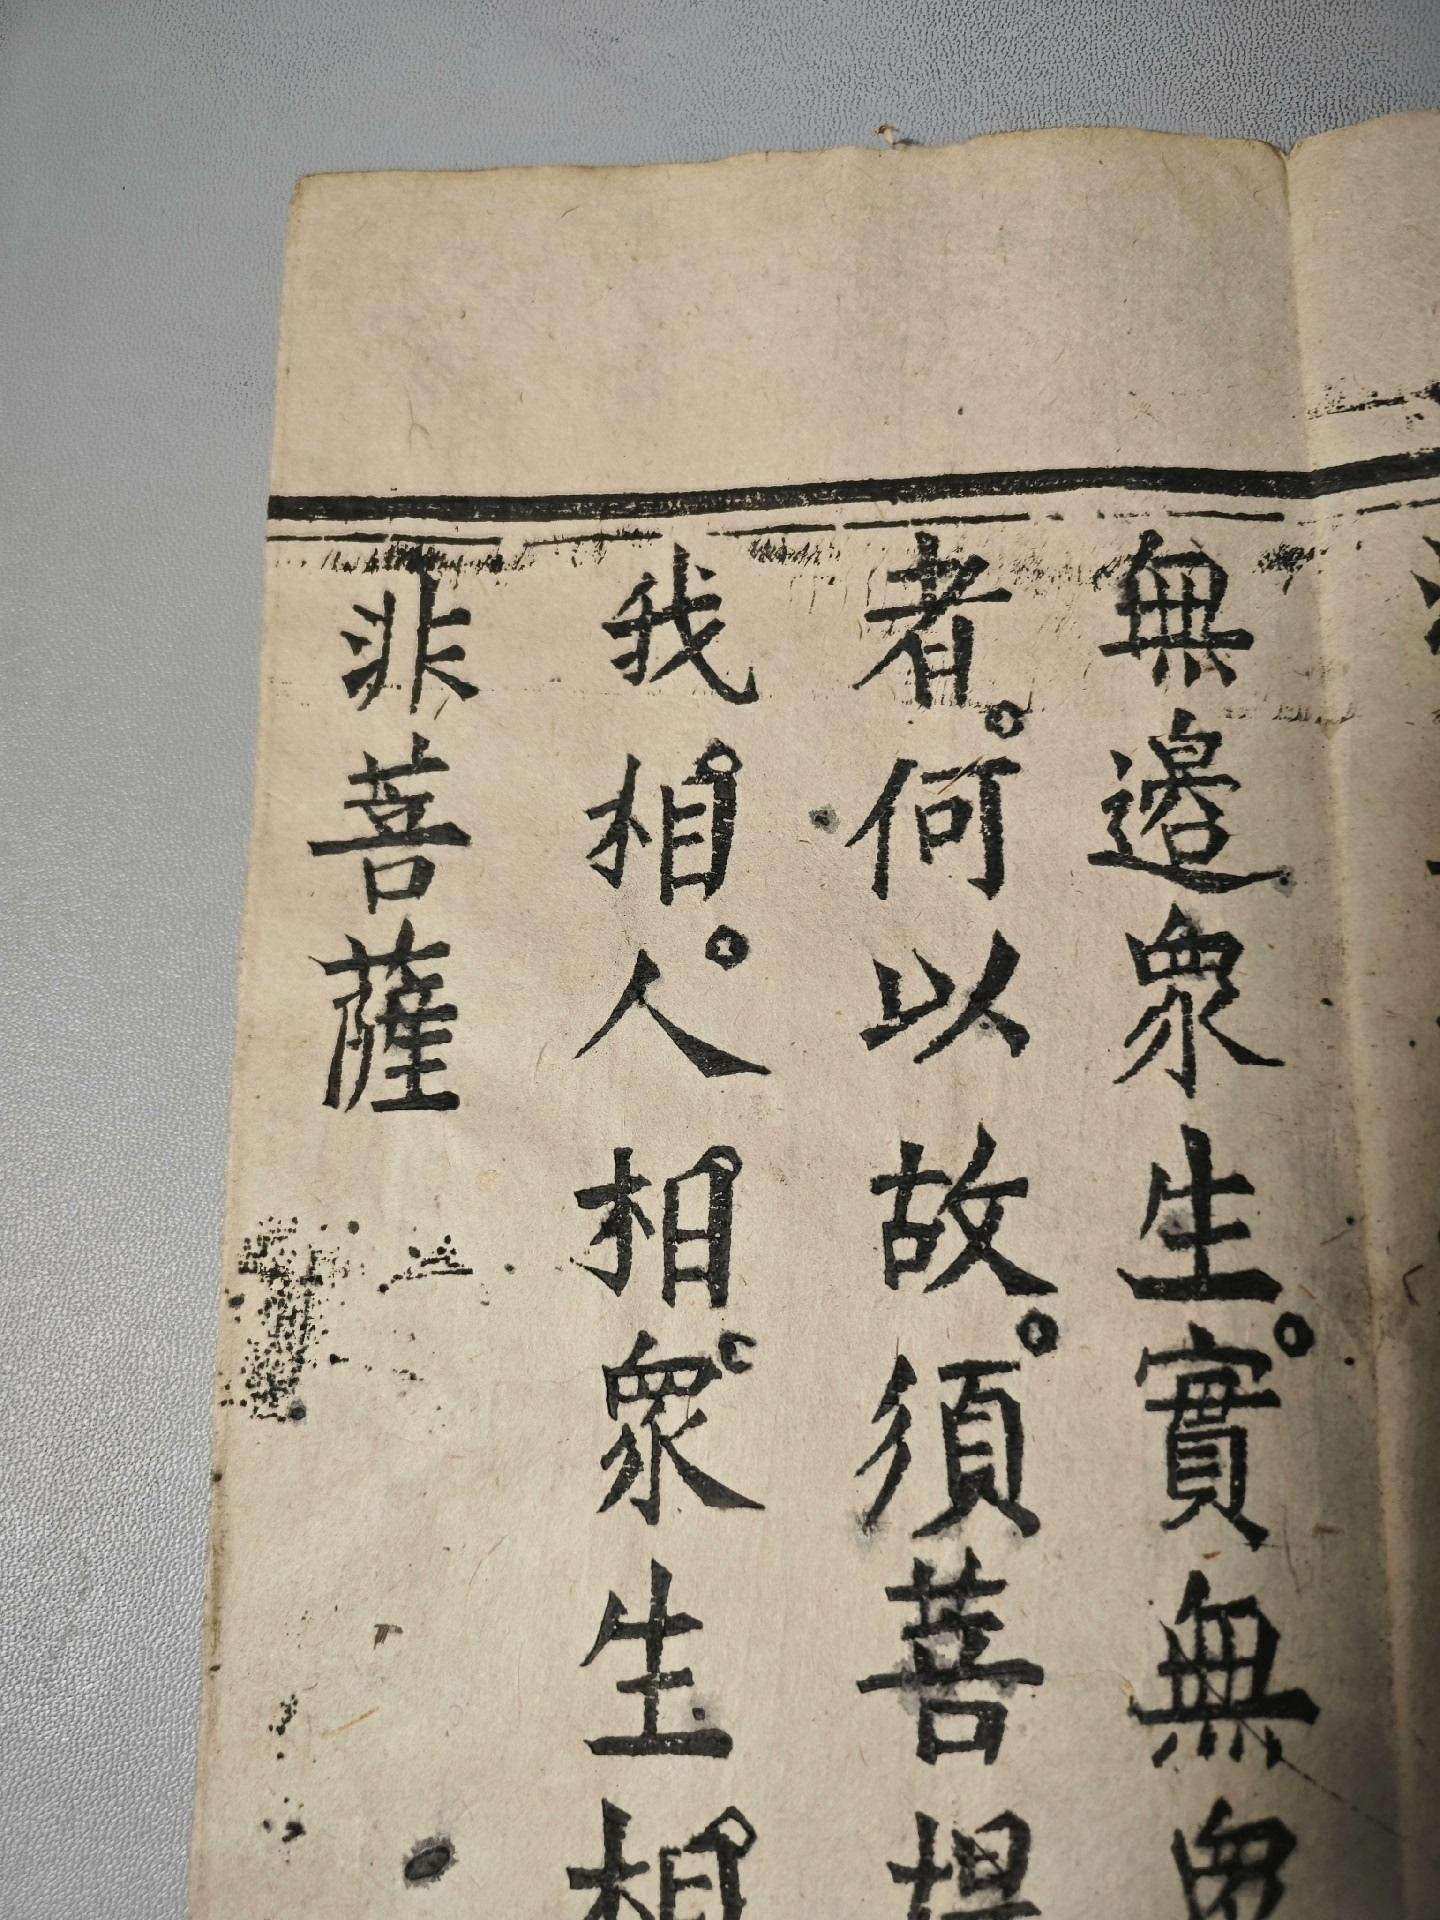 無邊衆生。實無衆
者。何以故。須菩提
我相。人相。衆生相
非菩薩